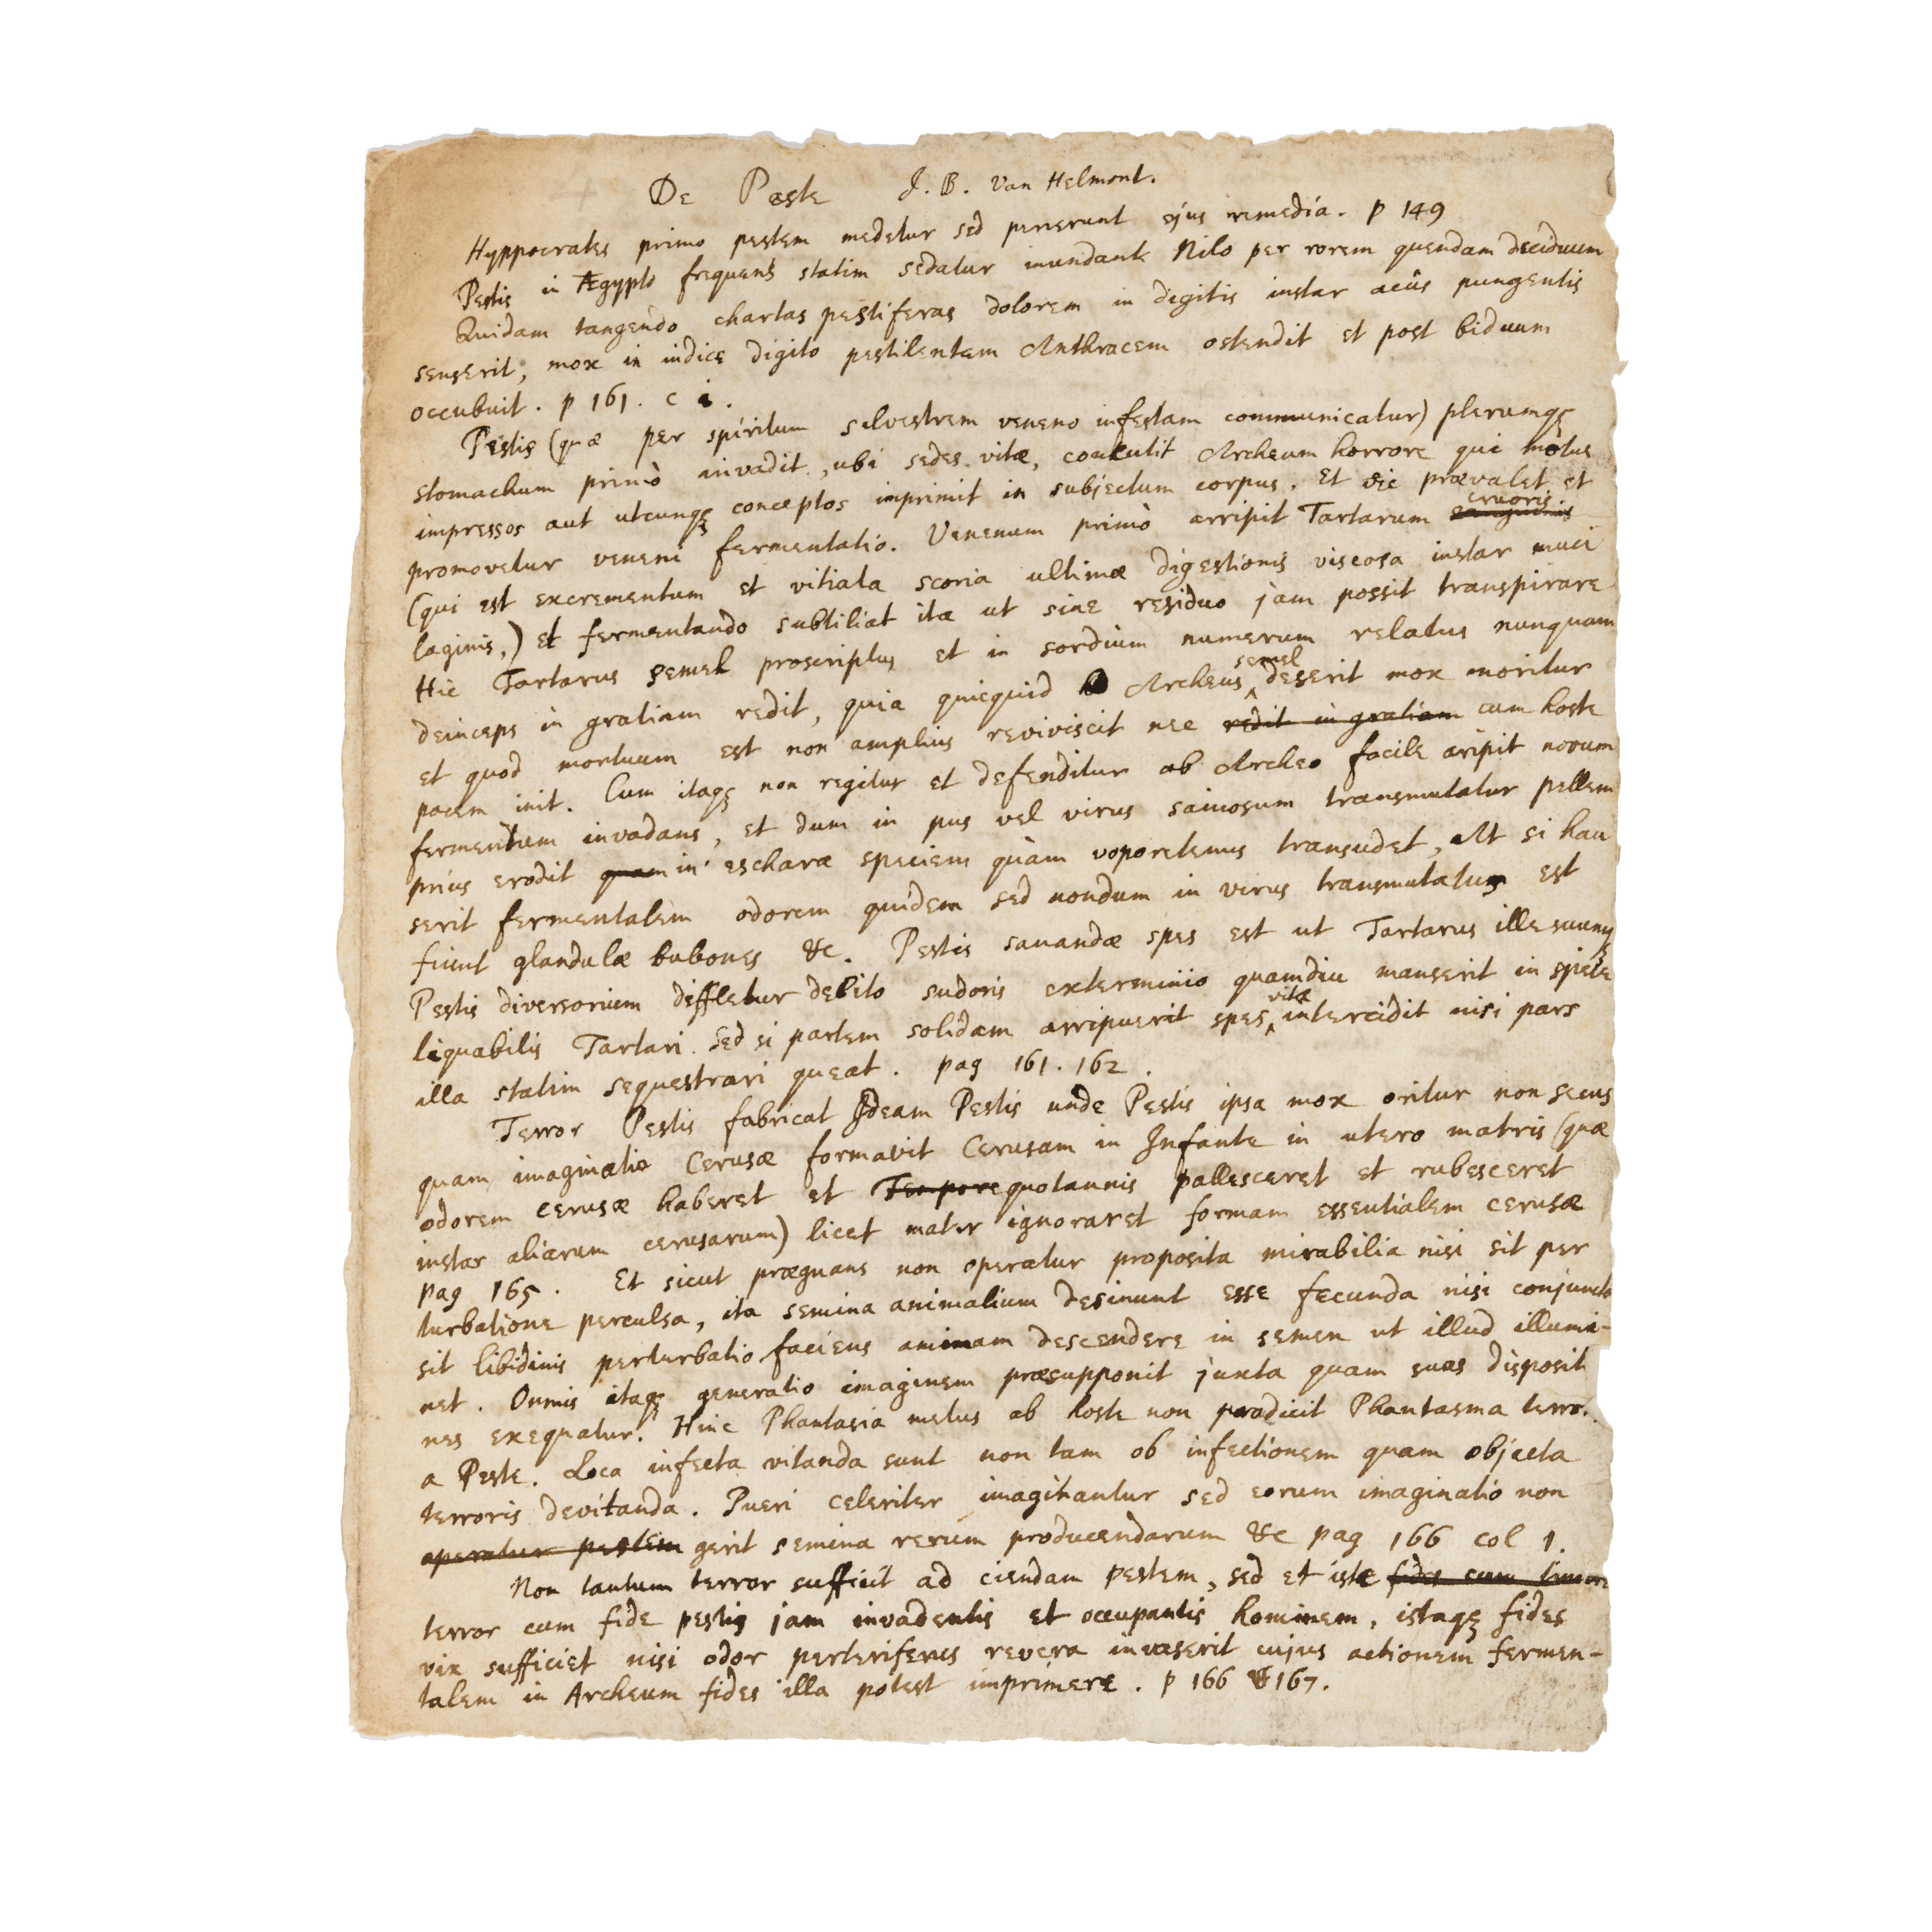 De Peste J. B. Van Helmont.
Hyppocrates primo pestem medetur sed perierunt ejus remedia. p 149
Pestis in Ægypto frequens statim sedatur inundante Nilo per rorem quendam deciduum
Quidam tangendo chartas pestiferas dolorem in digitis instar acûs pungentis
senserit, mox in indice digito pestilentem Anthracem ostendit et post biduum
occubuit. p 161. c 1.
Pestis (quæ per spiritum silvestrem veneno infestam communicatur) plerumq3
stomachum primò invadit, ubi sedes vitæ, concutit Archeum horrore qui motus
impressos aut utcunq3 conceptos imprimit in subjectum corpus. Et sic prævalet et
promovetur veneni fermentatio. Venenum primò arripit Tartarum sanguinis cruoris
(qui est excrementum et vitiata scoria ultimæ digestionis viscosa instar muci
laginis,) et fermentando subtiliat ita ut sine residuo jam possit transpirare
Hic Tartarus semel proscriptus et in sordium numerum relatus nunquam
deinceps in gratiam redit, quia quicquid Archeus semel deserit mox moritur
et quod mortuum est non amplius reviviscit nec redit in gratiam cum hoste
pacem init. Cum itaq3 non regitur et defenditur ab Archeo facile aripit novum
fermentum invadans, et dum in pus vel virus saniosum transmutatur pellem
prius erodit quam in escharæ speciem quàm vaporetenus transudet, At si hau
serit fermentalem odorem quidem sed nondum in virus transmutatus est
fiunt glandulæ bubones &c. Pestis sanandæ spes est ut Tartarus ille
Pestis diversorium diffletur debito sudoris exterminio quamdiu manserit in specie
liquabilis Tartari. Sed si partem solidam arripuerit spes vitæ intercidit nisi pars
illa statim sequestrari queat. pag 161. 162.
Terror Pestis fabricat Ideam Pestis unde Pestis ipsa mox oritur non secus
quam imaginatio Cerusæ formavit Cerusam in Infante in utero matris (quæ
odorem cerusæ haberet et Tempore quotannis pallesceret et rubesceret
instar aliarum cerusarum) licet mater ignoraret formam essentialem cerusæ
pag 165. Et sicut prægnans non operatur proposita mirabilia nisi sit per
turbatione perculsa, ita semina animalium desinunt esse fecunda nisi conjuncta
sit libidinis perturbatio faciens animam descendere in semen ut illud illumi-
net. Omnis itaq3 generatio imaginem præsupponit juxta quam suas disposit
nes exequatur. Hinc Phantasia metus ab hoste non producit Phantasma terro
a Peste. Loca infecta vitanda sunt non tam ob infectionem quam objecta
terroris devitanda. Pueri celeriter imaginantur sed eorum imaginatio non
operatur pestem gerit semina rerum producendarum &c pag 166 col 1.
Non tantum terror sufficit ad ciendam pestem, sed et iste fides cum timore
terror cum fide pestis jam invadentis et occupantis hominem, istaq3 fides
vix sufficiet nisi odor perteriferus revera invaserit cujus actionem fermen-
talem in Archeum fides illa potest imprimere. p 166 & 167.